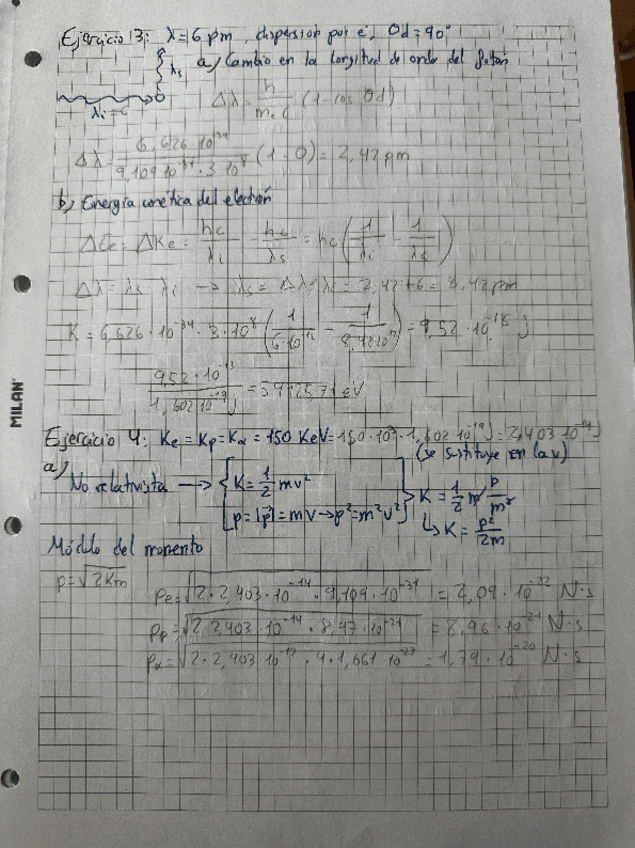 Ejercicio 13: λ = 6 pm, dispersión por e⁻, Od = 90°
λs
a) Cambio en la longitud de onda del fotón
λi = 6
Δλ = h/(me c) (1 - cos Od)
Δλ = 6,626·10⁻³⁴/(9,109·10⁻³¹·3·10⁸) (1-0) = 2,42 pm
b) Energía cinética del electrón
ΔEe = ΔKe = hc/λi - hc/λs = hc(1/λi - 1/λs)
Δλ = λs - λi → λs = Δλ + λi = 2,42 + 6 = 8,42 pm
K = 6,626·10⁻³⁴·3·10⁸ (1/(6·10⁻¹²) - 1/(8,42·10⁻¹²)) = 9,52·10⁻¹⁵ J
MILAN
Ejercicio 4: Ke = Kp = Kα = 150 KeV = 150·10³·1,602·10⁻¹⁹ J = 2,403·10⁻¹⁴ J
a)
(se sustituye en la v)
No relativista → { K = 1/2 mv²
p = |p⃗| = mv → p² = m²v² } K = 1/2 m p/m²
↳ K = p²/2m
Módulo del momento
p = √2Km
Pe = √2·2,403·10⁻¹⁴·9,109·10⁻³¹ = 2,09·10⁻²² N·s
Pp = = 8,96·10⁻²¹ N·s
Pα = √2·2,403·10⁻¹⁷·4·1,661·10⁻²⁷ = 1,79·10⁻²⁰ N·s